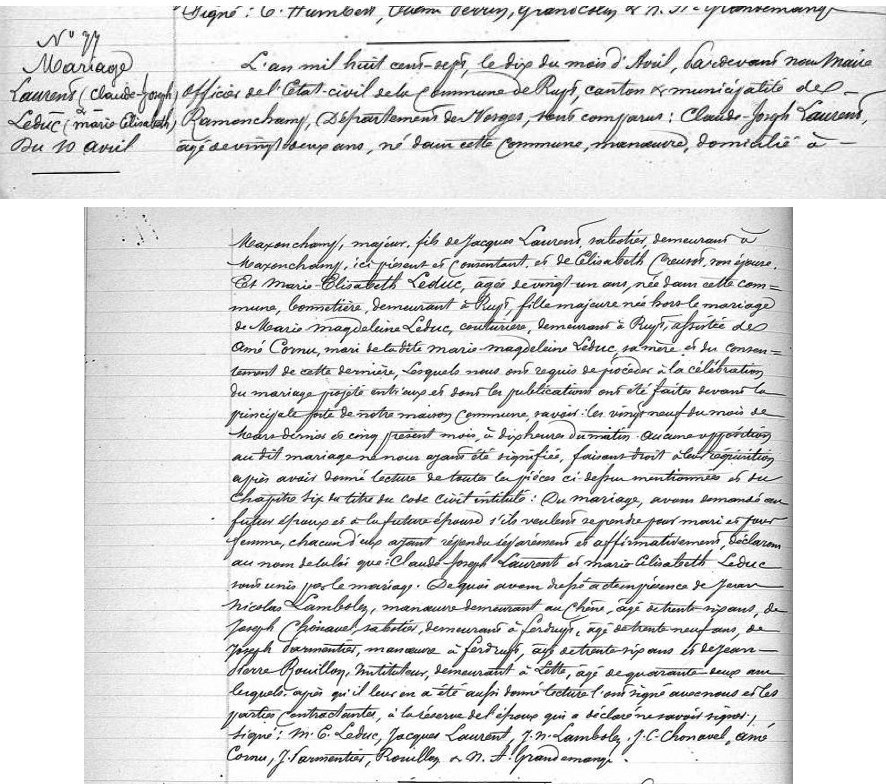 Signé : C. Humbert, Perrin, Grandcolin & N. A. Grandemange
N° 77
Mariage
Laurent (Claude-Joseph)
&
Leduc (marie Elisabeth)
Du 10 avril
L'an mil huit cent-sept, le dix du mois d'Avril, Pardevant nous Maire
officier de l'Etat-civil de la Commune de Rupt, canton & municipalité de
Ramonchamp, Département des Vosges, sont comparus : Claude-Joseph Laurent,
âgé de vingt deux ans, né dans cette commune, manœuvre, domicilié à —
Maxonchamp, majeur, fils de Jacques Laurent, sabotier, demeurant à
Maxonchamp, ici présent et consentant, et de Elisabeth Creusot, son épouse.
Et Marie-Elisabeth Leduc, agée de vingt-un ans, née dans cette com=
mune, bonnetière, demeurant à Rupt, fille majeure née hors le mariage
de Marie magdeleine Leduc, couturière, demeurant à Rupt, assistée de
Amé Cornu, mari de la dite marie-magdeleine Leduc, sa mère et du consen=
tement de cette dernière, Lesquels nous ont requis de procéder à la célébration
du mariage projeté entr'eux et dont les publications ont été faites devant la
principale porte de notre maison commune, savoir : les vingt neuf du mois de
Mars dernier et cinq présent mois, à dix heures du matin. Aucune opposition
au dit mariage ne nous ayant été signifiée, faisant droit à leur réquisition
après avoir donné lecture de toutes les pièces ci-dessus mentionnées et du
Chapitre six du titre du code civil intitulé : Du mariage, avons demandé au
futur époux et à la future épouse s'ils veulent se prendre pour mari et pour
femme, chacun d'eux ayant répondu séparément et affirmativement, déclarons
au nom de la loi que : Claude Joseph Laurent et marie Elisabeth Leduc
sont unis par le mariage. De quoi avons dressé acte en présence de Jean
Nicolas Lamboley, manœuvre demeurant au Chêne, âgé de trente six ans, de
Joseph Chonavel, sabotier, demeurant à ferdrupt, âgé de trente neuf ans, de
Joseph Parmentier, manœuvre à ferdrupt, âgé de trente six ans et de Jean-
Pierre Rouillon, Instituteur, demeurant à Lette, âgé de quarante deux ans
lesquels après qu'il leur en a été aussi donné lecture l'ont signé avec nous et les
parties contractantes, à la réserve de l'époux qui a déclaré ne savoir signer.
Signé : M. E. Leduc, Jacques Laurent, J. N. Lamboley, J. C. Chonavel, amé
Cornu, J. Parmentier, Rouillon & N. A. Grandemange.